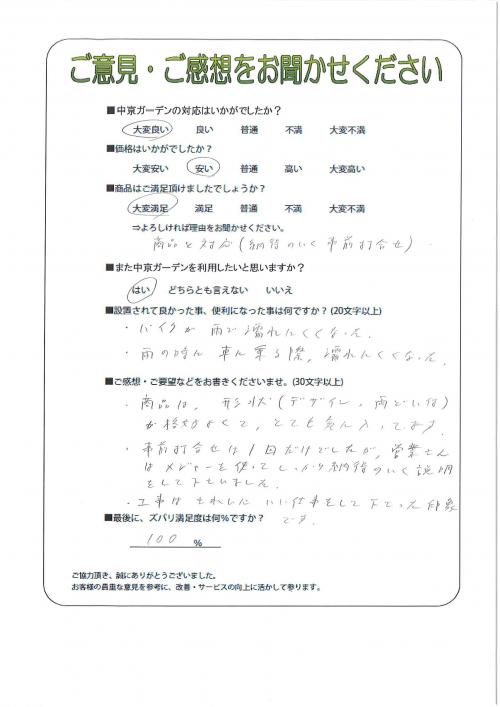 ご意見・ご感想をお聞かせください
■中京ガーデンの対応はいかがでしたか？
大変良い 良い 普通 不満 大変不満
■価格はいかがでしたか？
大変安い 安い 普通 高い 大変高い
■商品はご満足頂けましたでしょうか？
大変満足 満足 普通 不満 大変不満
⇒よろしければ理由をお聞かせください。
商品と対応（納得のいく事前打合せ）.
■また中京ガーデンを利用したいと思いますか？
はい どちらとも言えない いいえ
■設置されて良かった事、便利になった事は何ですか？(20文字以上)
・バイクが雨で濡れにくくなった.
・雨の時に車に乗る際, 濡れにくくなった.
■ご感想・ご要望などをお書きくださいませ。(30文字以上)
・商品は, 形状（デザイン、雨どい等）
が格好よくて, とても気に入ってます.
・事前打合せは1回だけでしたが, 営業さん
はメジャーを使ってしっかり納得のいく説明
をして下さいました.
・工事は きれいに いい仕事をして下さった印象
です.
■最後に、ズバリ満足度は何％ですか？
100 %
ご協力頂き、誠にありがとうございました。
お客様の貴重な意見を参考に、改善・サービスの向上に活かして参ります。